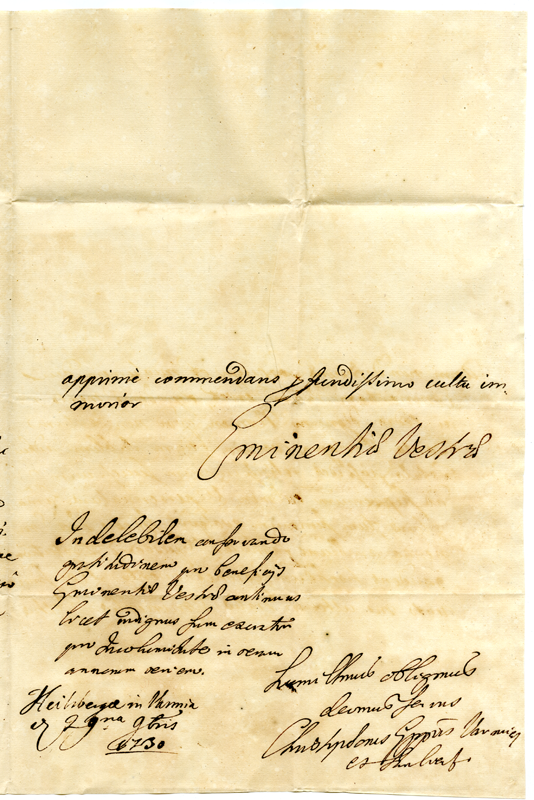 apprimè commendans profundissimo cultu im-
morior
Eminentiæ Vestræ
Indelebilem conservando
gratitudinem pro beneficijs
Eminentiæ Vestræ continuus
licet indignus sum exorator
pro Incolumitate in seram
annorum seriem.
Heilsbergæ in Varmia
9bris
1730
humillimus obligmus
devmus servus
Christophorus Eppus Varmien
et Sambien.